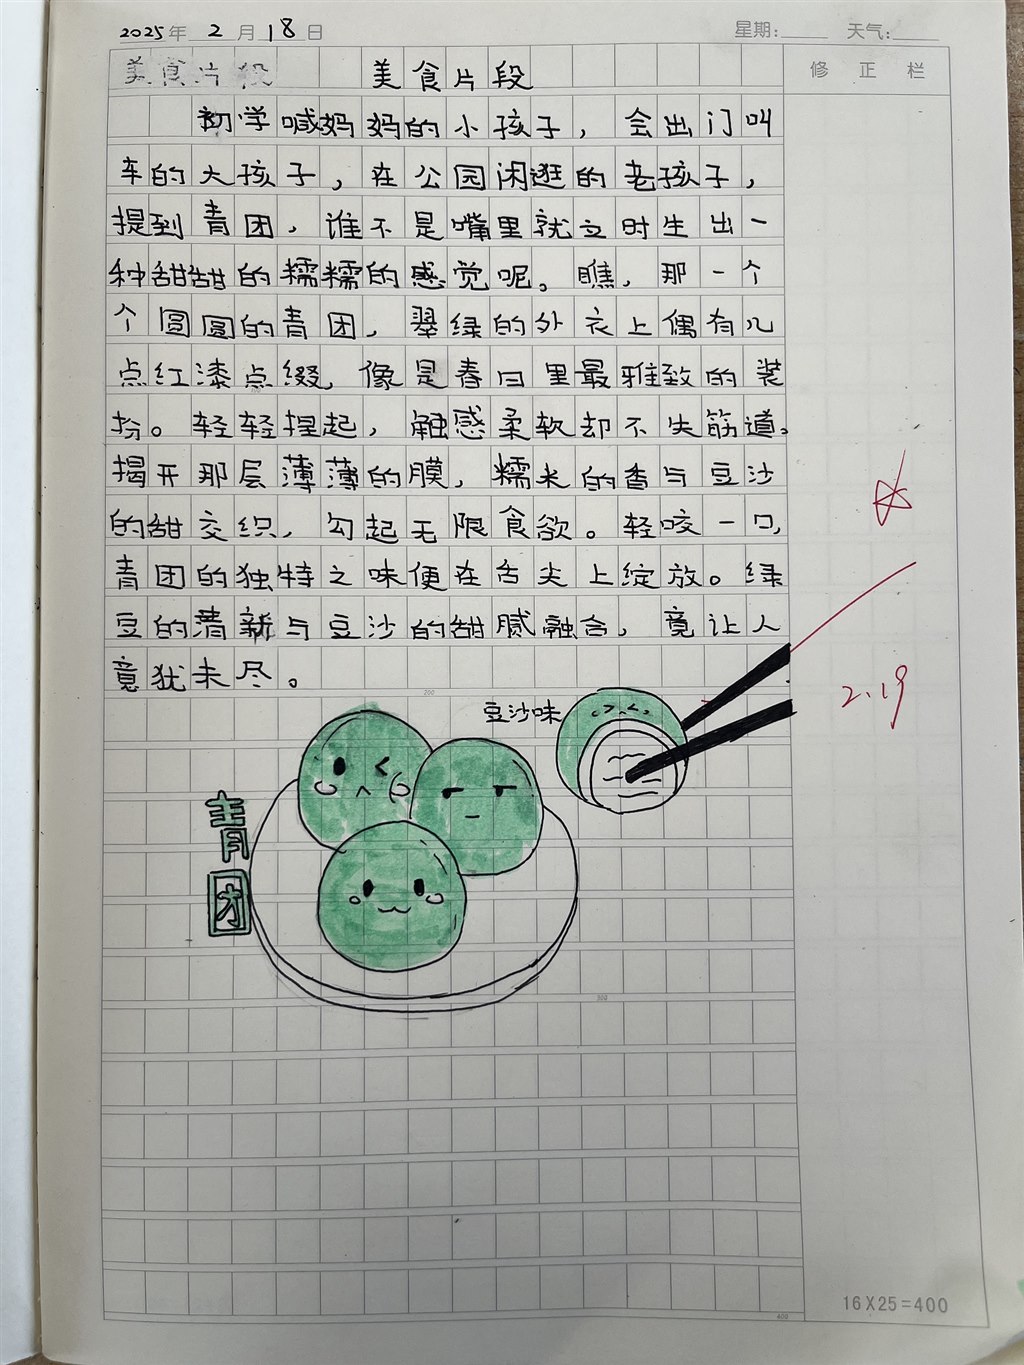 2025年 2 月 18 日 星期: 天气:
美食片段 美食片段 修 正 栏
初学喊妈妈的小孩子，会出门叫
车的大孩子，在公园闲逛的老孩子，
提到青团，谁不是嘴里就之时生出一
种甜甜的糯糯的感觉呢。瞧，那一个
个圆圆的青团，翠绿的外衣上偶有几
点红漆点缀，像是春日里最雅致的装
扮。轻轻捏起，触感柔软却不失筋道。
揭开那层薄薄的膜，糯米的香与豆沙
的甜交织，勾起无限食欲。轻咬一口，
青团的独特之味便在舌尖上绽放。绿
豆的清新与豆沙的甜腻融合，竟让人
意犹未尽。
200
豆沙味
2.19
青团
300
16X25=400
400